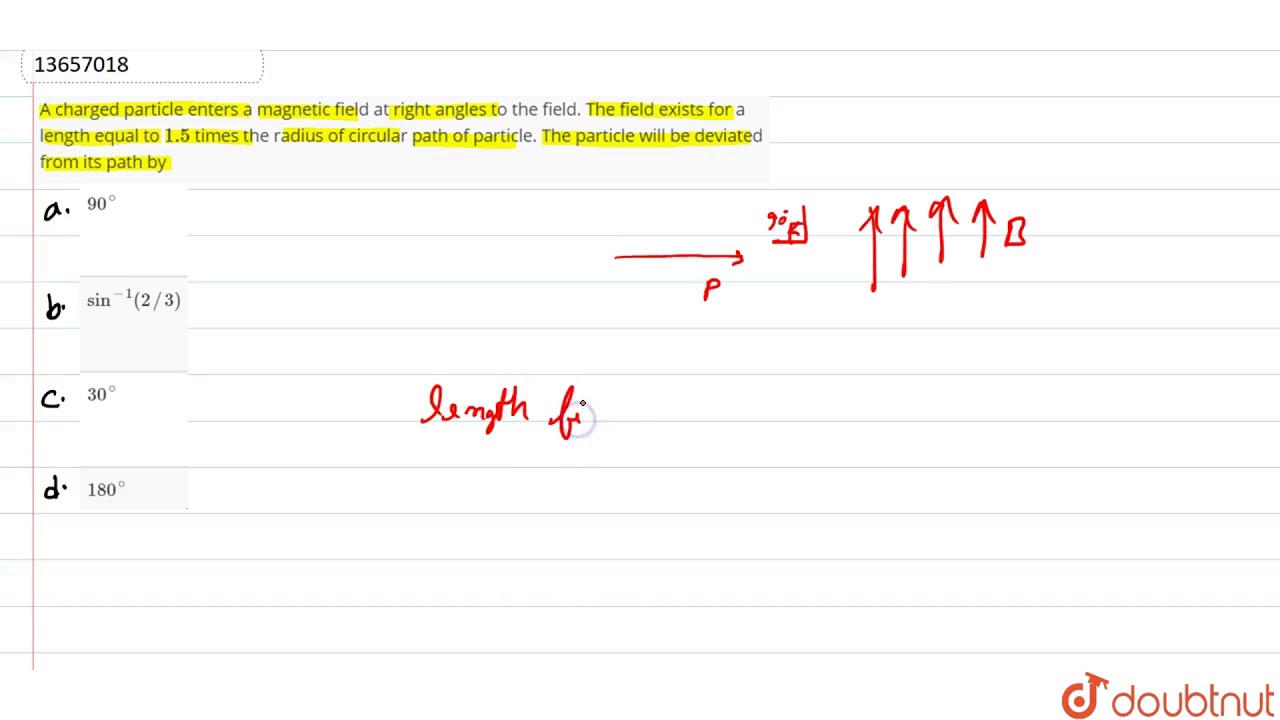 13657018
A charged particle enters a magnetic field at right angles to the field. The field exists for a
length equal to 1.5 times the radius of circular path of particle. The particle will be deviated
from its path by
a. 90°
b. sin⁻¹(2/3)
c. 30°
d. 180°
90°
B
P
length
doubtnut